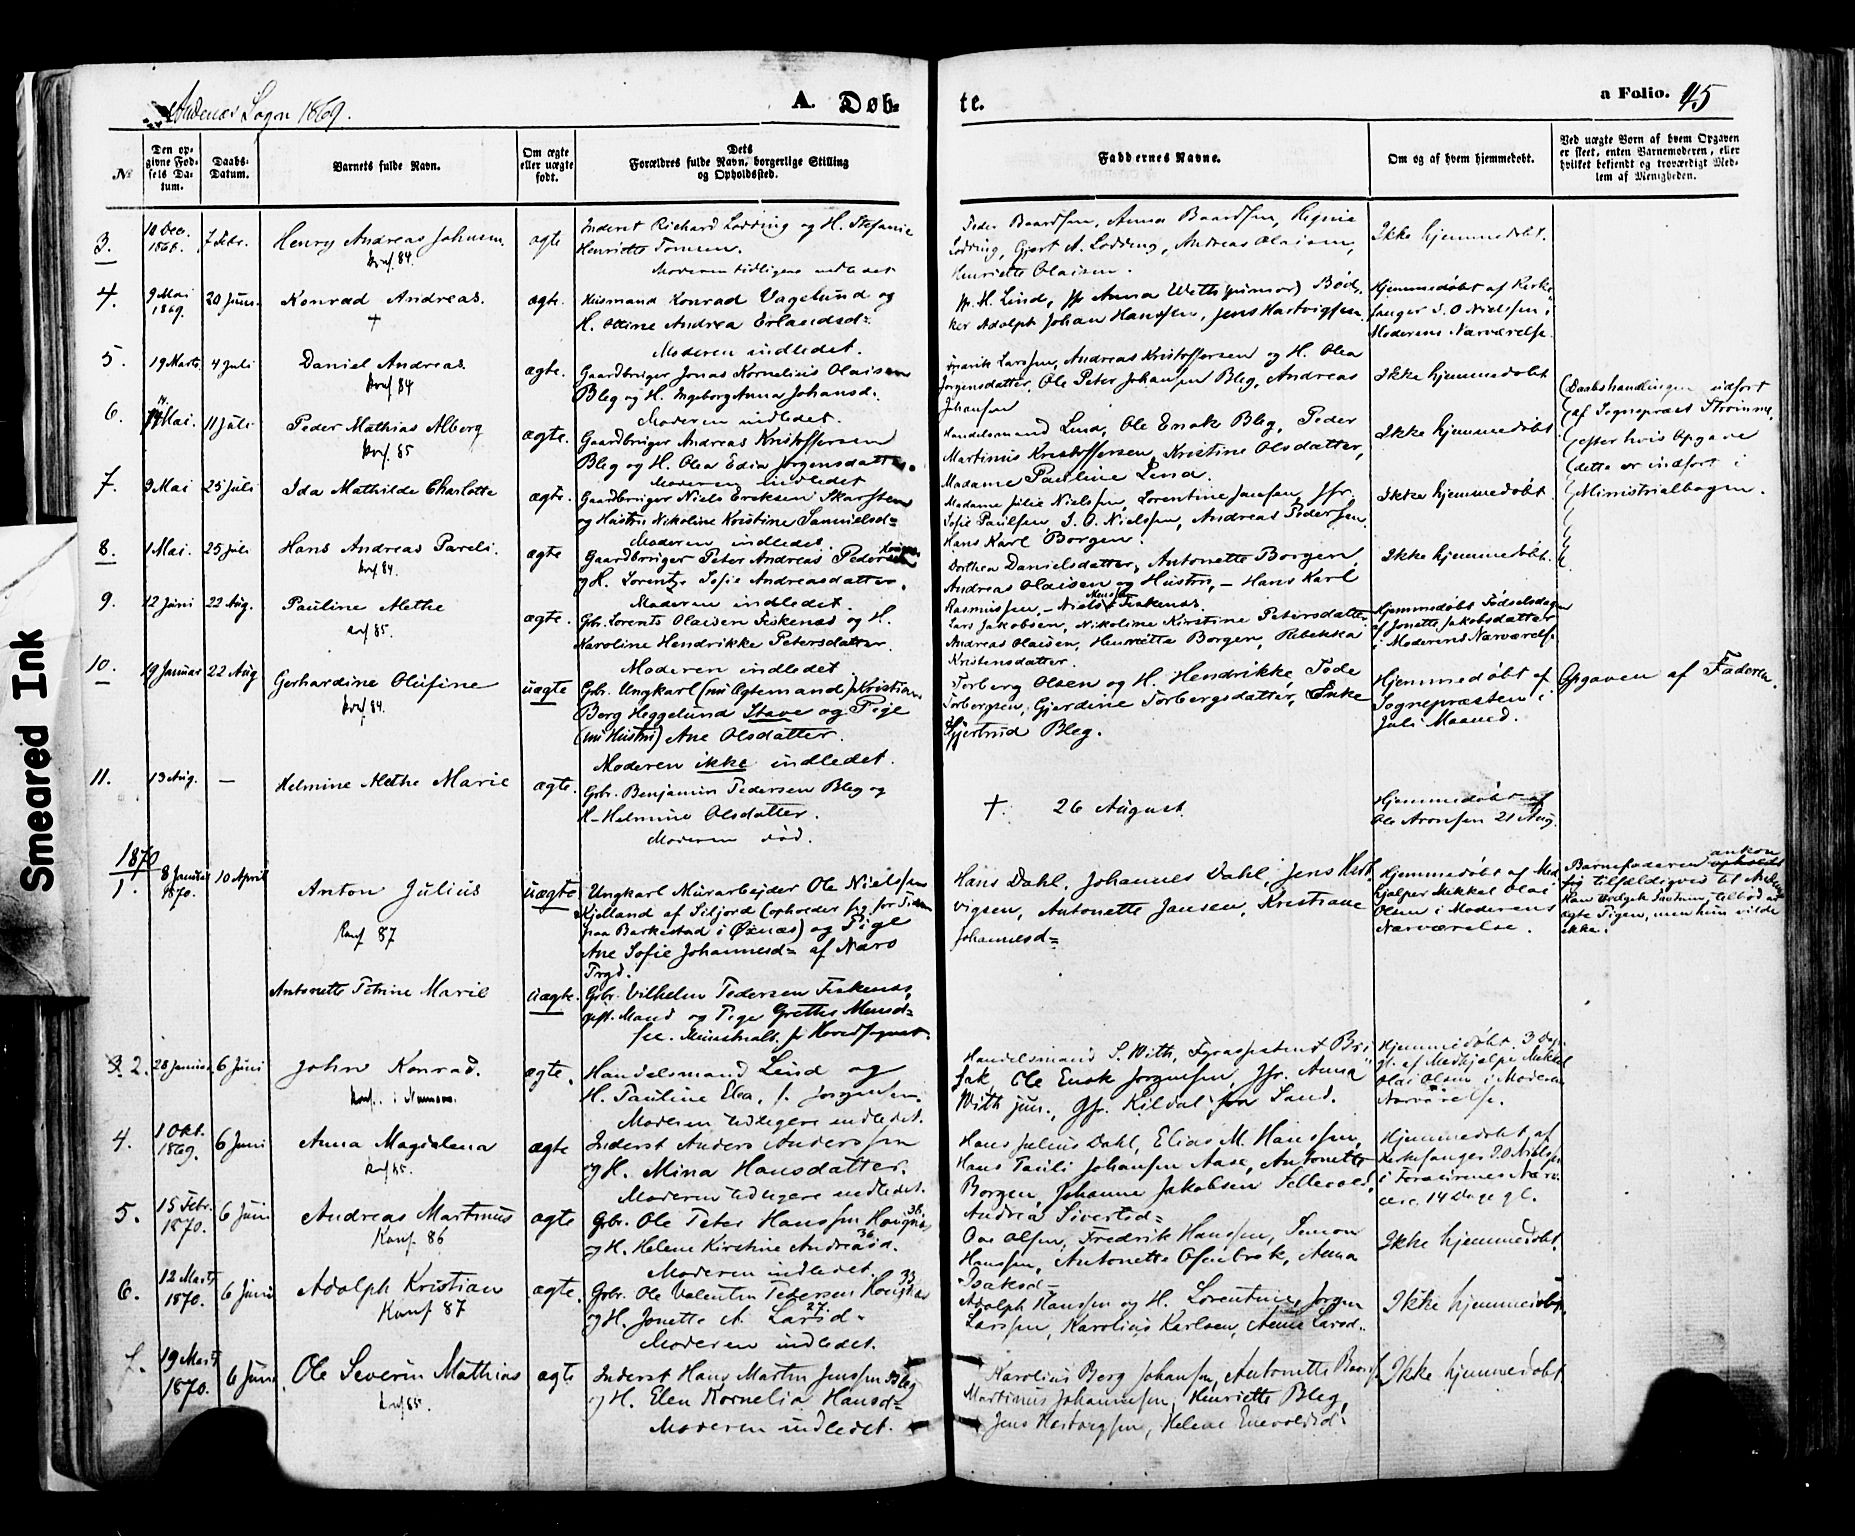 Andenæs Sogn 1869.
A. Døb-
te.
a Folio. 45
№
Den op-
givne Fød-
sels Da-
tum.
Daabs-
Datum.
Barnets fulde Navn.
Om ægte
eller uægte
født.
Dets
Forældres fulde Navn, borgerlige Stilling
og Opholdssted.
Faddernes Navne.
Om og af hvem hjemmedøbt.
Ved uægte Børn af hvem Opgaven
er skeet, enten Barnemoderen, eller
hvilket bekjendt og troværdigt Med-
lem af Menigheden.
Smeared Ink
3.
10 Dec.
1868.
7 Febr.
Henry Andreas Johnsen
Konf. 84.
ægte
Inderst Richard Lodding og H. Stefanie
Henriette Tomsen.
Moderen tidligere indledet
Peder Baardsen, Anna Baardsen, Regine
Lodding, Gjert A. Lodding, Andreas Olaisen,
Henriette Olaisen.
Ikke hjemmedøbt.
4.
9 Mai
1869.
20 Juni
Konrad Andreas.
†
ægte.
Husmand Konrad Vagelund og
H. Oline Andrea Erlandsd=
Moderen indledet.
H. Lind, Anna With, Bød-
ker Adolph Johan Hanssen, Jens Hartvigsen
Hjemmedøbt af Kirke-
sanger I. O. Nielssen i
Moderens Nærværelse.
5.
19 Marts
4 Juli
Daniel Andreas.
Konf 84
ægte.
Gaardbruger Jonas Kornelius Olaisen
Bleg og H. Ingeborg Anna Johansd=
Moderen indledet.
Larssen, Andreas Kristoffersen og H. Olea
Jørgensdatter, Ole Peter Johansen Bleg, Andreas
Johansen
Ikke hjemmedøbt
6.
14 Mai.
11 Juli
Peder Mathias Alberg
Konf. 85
ægte.
Gaardbruger Andreas Kristoffersen
Bleg og H. Olea Edia Jørgensdatter.
Moderen indledet
Handelsmand Lind, Ole Enok Bleg, Peder
Martinus Kristoffersen, Kristine Olsdatter,
Madame Pauline Lind.
Ikke hjemmedøbt
Daabshandlingen udført
af Sognepræst Strømme,
efter hvis Opgave
dette er indført i
Ministrialbogen.
7.
9 Mai
25 Juli
Ida Mathilde Charlotte
ægte.
Gaardbruger Niels Eriksen Skarsten
og Hustru Nikoline Kristine Samuelsd=
Moderen indledet.
Madame Julie Nielsen, Lorentine Jansen, Jfr.
Sofie Paulsen, I. O. Nielssen, Andreas Pedersen
Hans Karl Borgen.
Ikke hjemmedøbt.
8.
1 Mai.
25 Juli
Hans Andreas Pareli.
Konf 84.
ægte
Gaardbruger Peter Andreas Pedersen
og H. Lorentze Sofie Andreasdatter.
Moderen indledet.
Dorthea Danielsdatter, Antonette Borgen,
Andreas Olaisen og Hustru, – Hans Karl
Rasmussen, – Niels Fiskenæs.
Ikke hjemmedøbt.
9.
12 Juni
22 Aug.
Pauline Alethe
Konf 85.
ægte.
Gbr. Lorents Olaisen Fiskenæs og H.
Karoline Hendrikke Petersdatter.
Moderen indledet
Lars Jakobsen, Nikoline Kirstine Petersdatter,
Andreas Olaisen, Henrietta Borgen, Rebekka
Kristensdatter.
Hjemmedøbt Fødselsdagen
af Jonette Jakobsdatter
i Moderens Nærværelse
10.
19 Januar
22 Aug
Gerhardine Olufine
Konf 84.
uægte
Gbr. Ungkarl (nu Ægtemand) Kristian
Berg Heggelund Stave og Pige
(nu Hustru) Ane Olsdatter.
Moderen ikke indledet.
Torberg Olsen og H. Hendrikke, Peder
Torbergsen, Gjerdine Torbergsdatter, Enke
Gjertrud Bleg.
Hjemmedøbt af
Sognepræsten i
Juli Maaned.
Opgaven af Faderen.
11.
13 Aug.
–
Helmine Alethe Marie
ægte.
Gbr. Benjamin Pedersen Bleg og
H. Helmine Olsdatter.
Moderen død.
†. 26 August.
Hjemmedøbt af
Ole Aronsen 21 Aug.
1870
1.
8 Januar
1870.
10 April
Anton Julius
Konf 87
uægte
Ungkarl Murarbejder Ole Nielsen
Kjelland af Siljord (opholder sig for Tiden
paa Barkestad i Øxnæs) og Pige
Ane Sofie Johannesd= af Nærø
Prgd.
Hans Dahl, Johannes Dahl, Jens Hart-
vigsen, Antonette Jansen, Kristiane
Johannesd=
Hjemmedøbt af Med-
hjælper Mikkel Olai
Olsen i Moderens
Nærværelse.
Barnefaderen ankom
tilfældigvis til
tilbød at
ægte Pigen, men hun vilde
ikke.
Antonette Petrine Marie
uægte.
Gbr. Vilhelm Pedersen Fiskenæs,
gift Mand og Pige Grethe Monsd=
see. Ministrialb. f. Hovedsognet.
2.
28 Januar
6 Juni
John Konrad.
Konf. i
ægte.
Handelsmand Lind og
H. Pauline Elea, f. Jørgensen.
Moderen tidligere indledet.
Handelsmand S. With, Fyrassistent Bri-
sak, Ole Enok Jørgensen, Jfr. Anna
With jun., Jfr. Kildal fra Sand.
Hjemmedøbt. 3 Dage
gl. af Medhjælper Mikkel
Olai Olsen i Moderens
Nærværelse.
4.
1 Okt.
1869.
6 Juni
Anna Magdalena
Konf 85.
ægte
Inderst Anders Anderssen
og H. Mina Hansdatter.
Moderen tidligere indledet.
Hans Julius Dahl, Elias M. Hanssen,
Hans Pauli Johansen Aase, Antonette
Borgen, Johanne Jakobsen Sellevold,
Andrea Sivertsd=
Hjemmedøbt af
Kirkesanger I. O. Nielsen
i Forældrenes Nærv-
ære. 14 Dage gl.
5.
15 Febr.
1870.
6 Juni
Andreas Martinus
Konf. 86
ægte
Gbr. Ole Peter Hanssen Haugnæs 36.
og H. Helene Kirstine Andreasd. 36.
Moderen indledet.
Ove Olsen, Fredrik Hanssen, Simon
Hanssen, Antonette Ofenbrok, Anna
Isaksd=
Ikke hjemmedøbt.
6.
12 Marts
1870.
6 Juni
Adolph Kristian
Konf 87
ægte.
Gbr. Ole Valentin Petersen Haugnæs 33
og H. Jonette A. Larsd= 27
Moderen indledet.
Adolph Hanssen og H. Lorentine, Jørgen
Larssen, Karolius Karlsen, Anne Larsd.
Ikke hjemmedøbt.
7.
19 Marts
1870.
6 Juni
Ole Severin Mathias
Konf 85.
ægte
Inderst Hans Martin Jenssen Bleg
og H. Elen Kornelia Hansd=
Moderen indledet.
Karolius Berg Johansen, Antonette
Martinus Johannessen, Henriette Bleg,
Jens Hartvigsen, Helene Enevoldsd=
Ikke hjemmedøbt